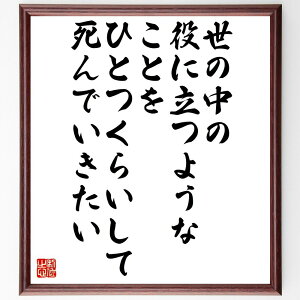 世の中の
役に立つような
ことを
ひとつくらいして
死んでいきたい